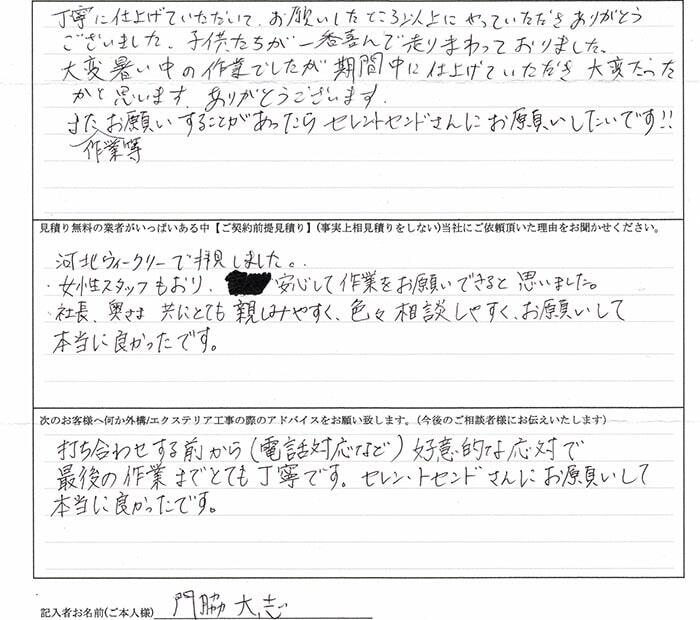 丁寧に仕上げていただいて、お願いしたところ以上にやっていただきありがとう
ございました。子供たちが一番喜んで走りまわっておりました。
大変暑い中の作業でしたが期間中に仕上げていただき大変だった
かと思います。ありがとうございます。
またお願いすることがあったらセレントセンドさんにお願いしたいです!!
作業等
見積り無料の業者がいっぱいある中【ご契約前提見積り】(事実上相見積りをしない)当社にご依頼頂いた理由をお聞かせください。
河北ウィークリーで拝見しました。
・女性スタッフもおり、安心して作業をお願いできると思いました。
・社長、奥さま 共にとても親しみやすく、色々相談しやすく、お願いして
本当に良かったです。
次のお客様へ何か外構/エクステリア工事の際のアドバイスをお願い致します。(今後のご相談者様にお伝えいたします)
打ち合わせする前から(電話対応など)好意的な応対で
最後の作業までとても丁寧です。セレントセンドさんにお願いして
本当に良かったです。
記入者お名前(ご本人様) 門脇 大志